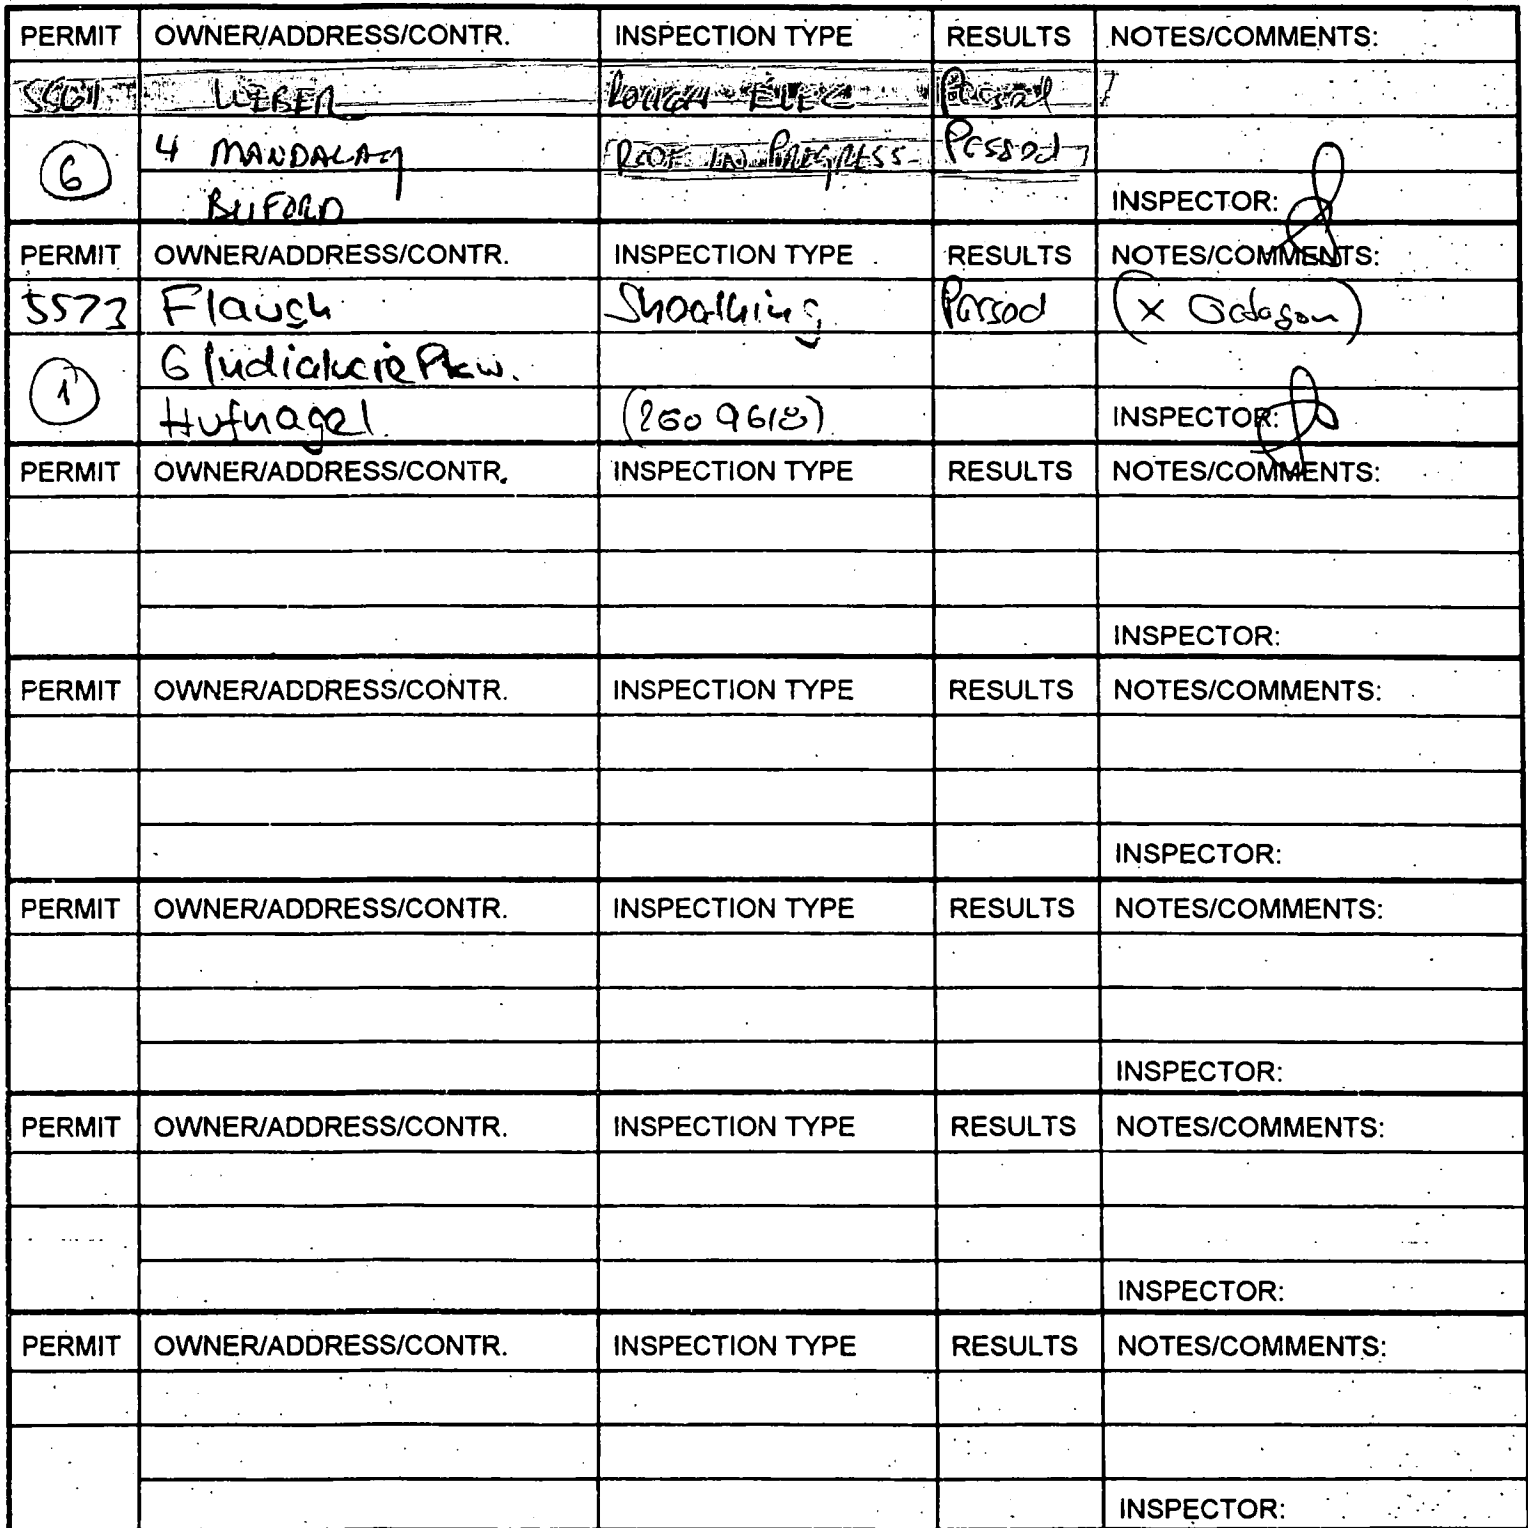 PERMIT OWNER/ADDRESS/CONTR. INSPECTION TYPE RESULTS NOTES/COMMENTS:
WEBER ROUGH ELEC Passed
6 4 MANDALAY ROOF IN PROGRESS Passed
BUFORD INSPECTOR:
PERMIT OWNER/ADDRESS/CONTR. INSPECTION TYPE RESULTS NOTES/COMMENTS:
5573 Flaugh Sheathing Passed (X Octagon)
1 6 Indialucie Pkw.
Hufnagel (260 9618) INSPECTOR:
PERMIT OWNER/ADDRESS/CONTR. INSPECTION TYPE RESULTS NOTES/COMMENTS:
INSPECTOR:
PERMIT OWNER/ADDRESS/CONTR. INSPECTION TYPE RESULTS NOTES/COMMENTS:
INSPECTOR:
PERMIT OWNER/ADDRESS/CONTR. INSPECTION TYPE RESULTS NOTES/COMMENTS:
INSPECTOR:
PERMIT OWNER/ADDRESS/CONTR. INSPECTION TYPE RESULTS NOTES/COMMENTS:
INSPECTOR:
PERMIT OWNER/ADDRESS/CONTR. INSPECTION TYPE RESULTS NOTES/COMMENTS:
INSPECTOR: